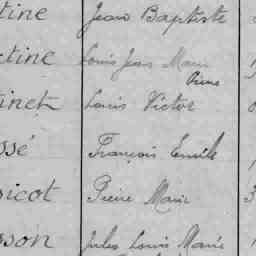 tine Jean Baptiste
ctine Louis Jean Marie
Pierre
tinet Louis Victor
ssé François Emile
icot Pierre Marie
sson Jules Louis Marie